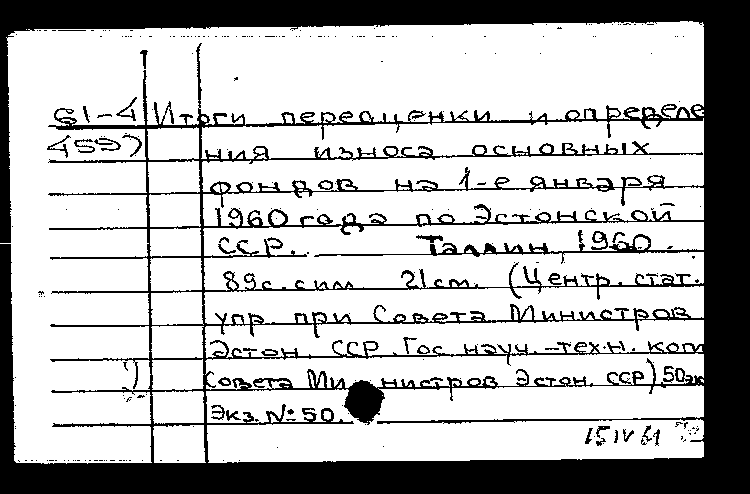 61-4 Итоги переоценки и определе
4597 ния износа основных
фондов на 1-е января
1960 года по Эстонской
ССР. Таллин, 1960.
89с. с ил 21см. (Центр. стат.
упр. при Совета Министров
Эстон. ССР. Гос науч.-техн. ком
Совета Министров Эстон. ССР) 50 эк
Экз. № 50.
15 IV 61